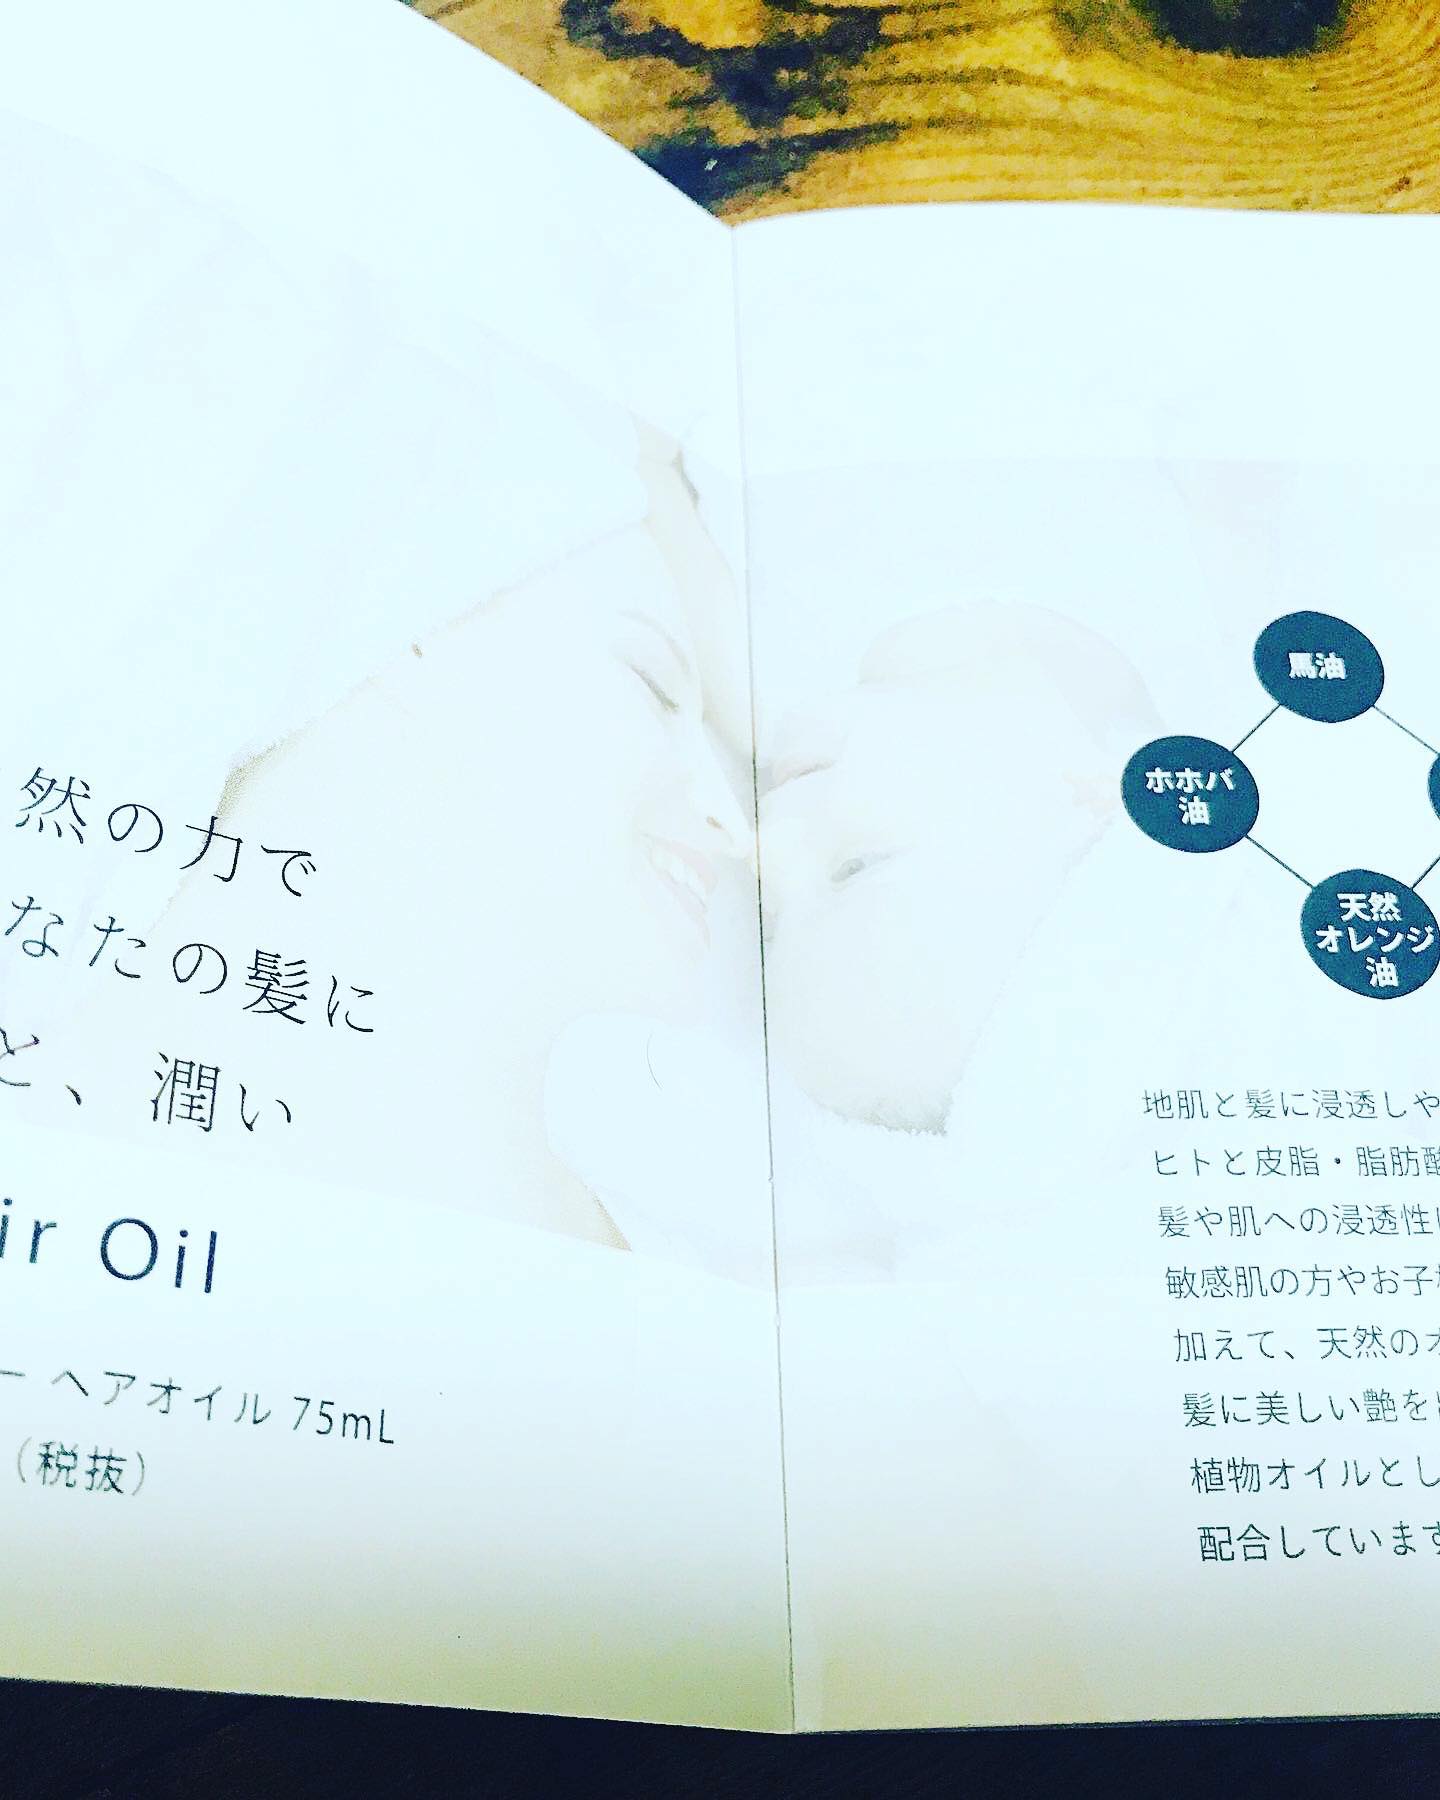 然の力で
なたの髪に
と、潤い
ir Oil
ー ヘアオイル 75mL
(税抜)
馬油
ホホバ
油
天然
オレンジ
油
地肌と髪に浸透しや
ヒトと皮脂・脂肪酸
髪や肌への浸透性
敏感肌の方やお子
加えて、天然のオ
髪に美しい艶を
植物オイルとし
配合しています